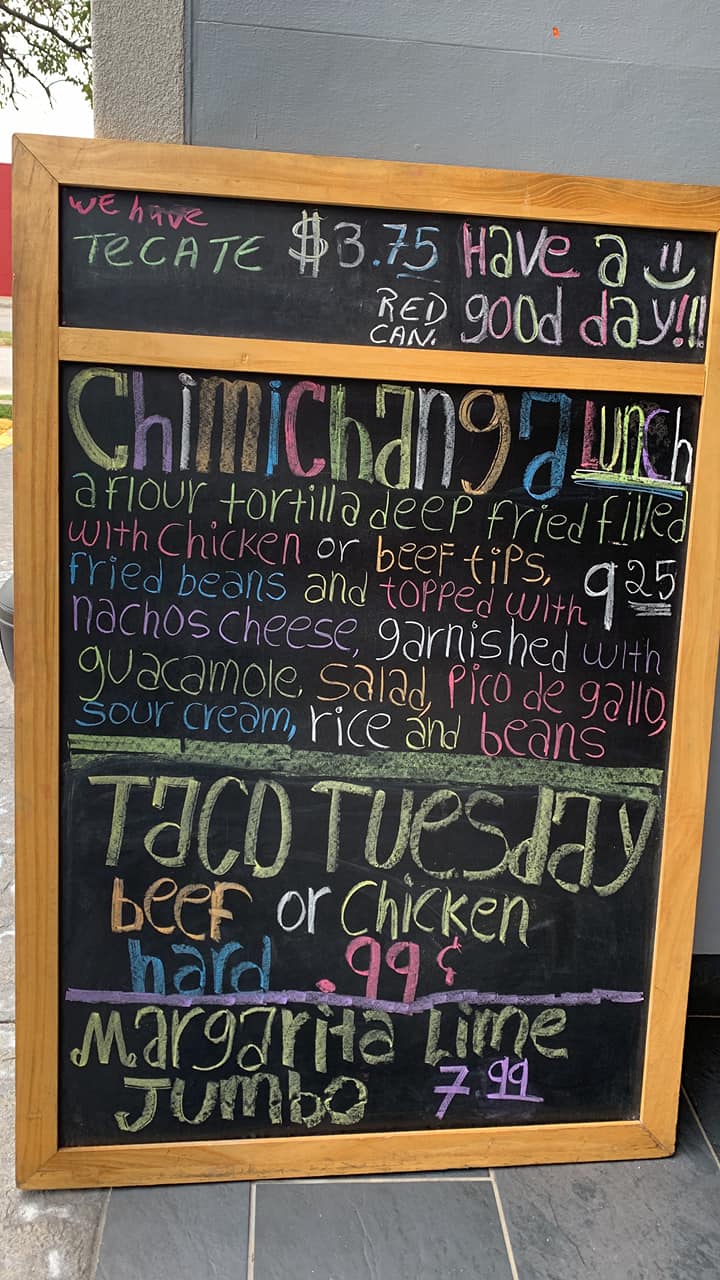 we have
TECATE $3.75 Have a
RED CAN. good day!!!
Chimichanga Lunch
a flour tortilla deep fried filled
with chicken or beef tips,
fried beans and topped with 9 25
nachos cheese, garnished with
guacamole, salad, Pico de gallo,
sour cream, rice and beans
Taco Tuesday
beef or chicken
hard .99¢
Margarita Lime
Jumbo 7.99